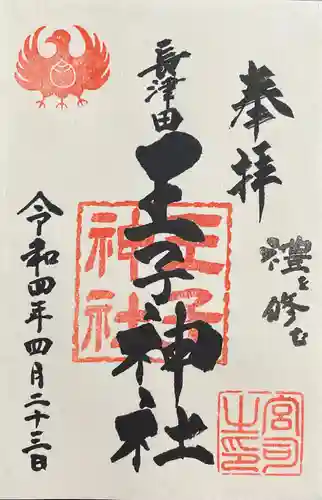 奉拝
禮を修む
長津田
王子神社
王子
神社
宮司
之印
令和四年四月二十三日